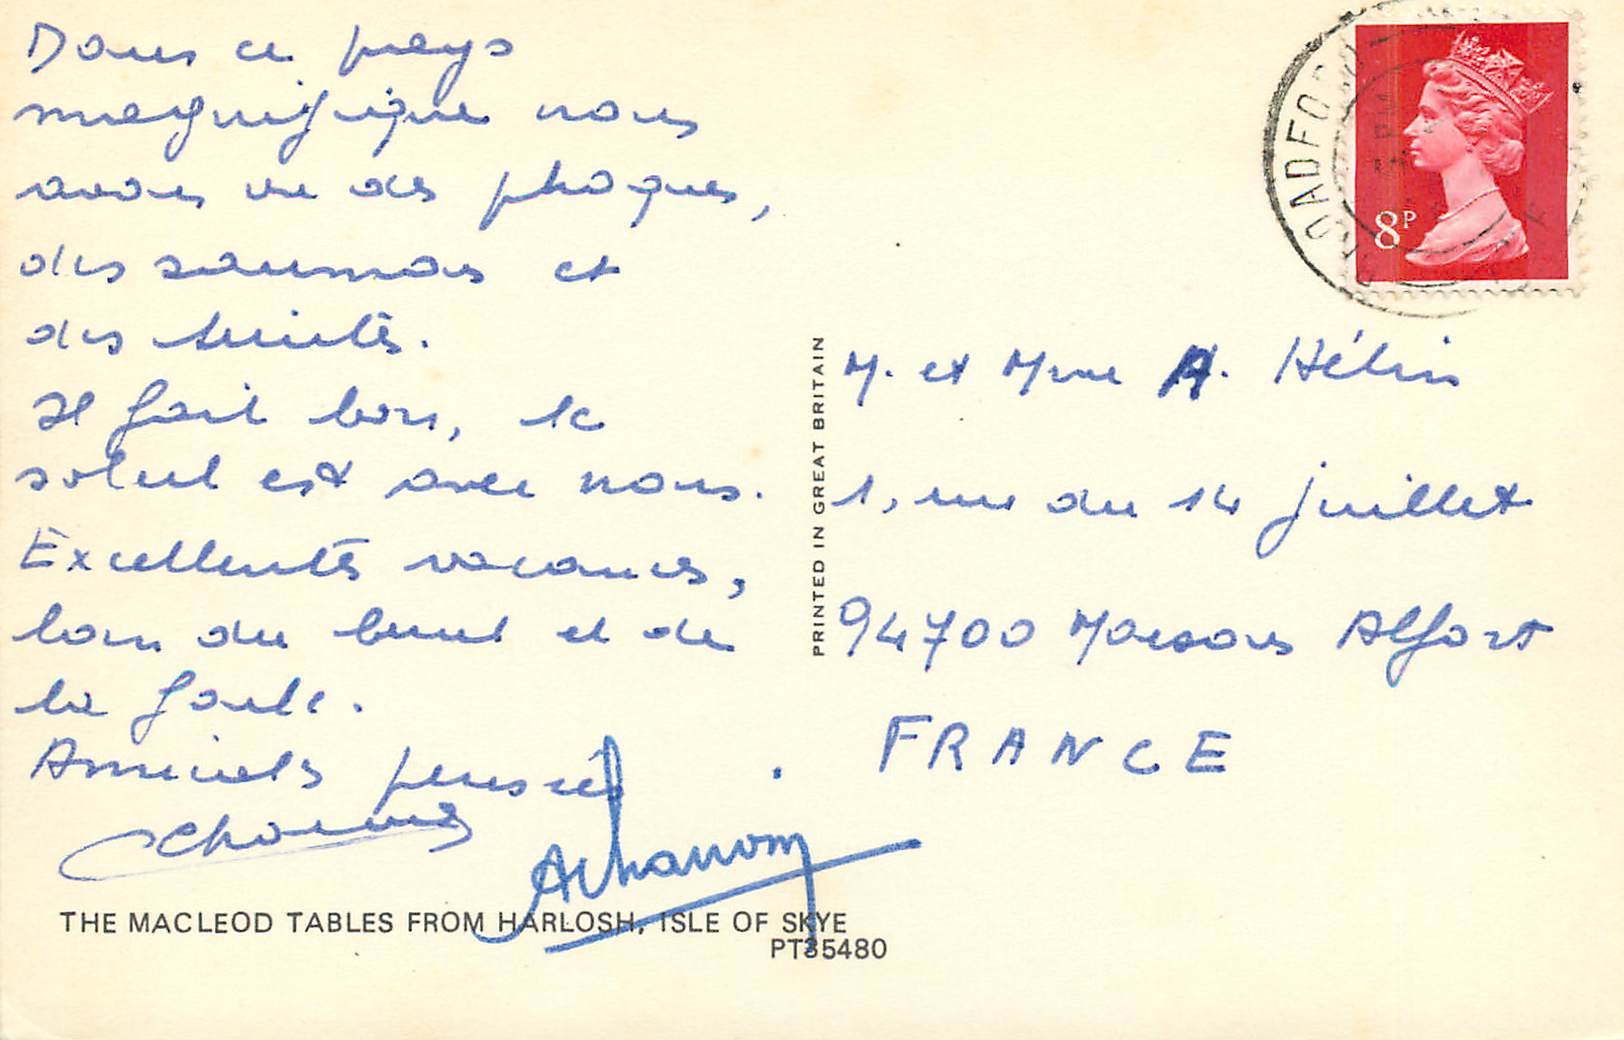 Dans ce pays
magnifique nous
avons vu des phoques,
des saumons et
des truites.
Il fait bon, le
soleil est avec nous.
Excellentes vacances,
loin du bruit et de
la foule.
Amicales pensées
THE MACLEOD TABLES FROM HARLOSH, ISLE OF SKYE
PT35480
PRINTED IN GREAT BRITAIN
BROADFORD
5 PM
8P
M. et Mme A. Hélin
1, rue du 14 juillet
94700 Maisons Alfort
FRANCE